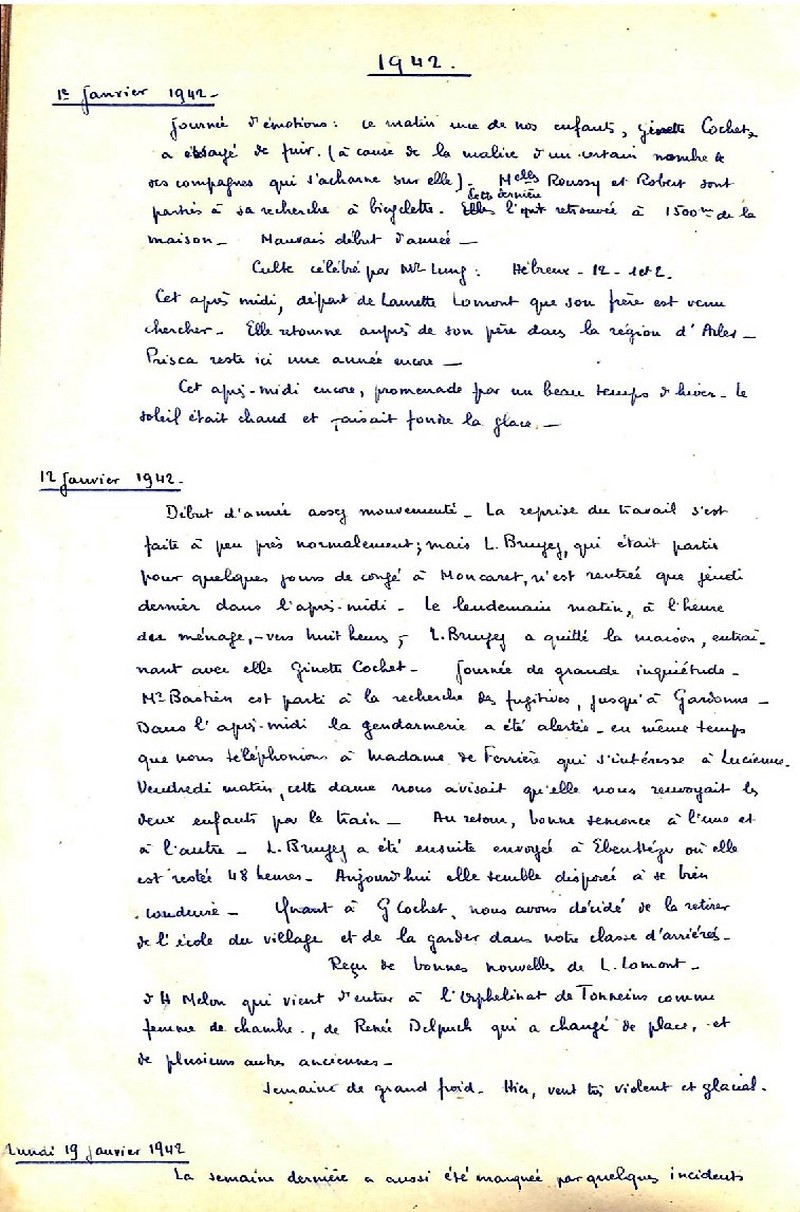 1942.
1er Janvier 1942_
Journée d'émotions: ce matin une de nos enfants, Ginette Cochet,
a essayé de fuir. (à cause de la malice d'un certain nombre de
ses compagnes qui s'acharne sur elle)_ Melles Roussy et Robert sont
cette dernière
parties à sa recherche à bicyclette. Elles l'ont retrouvée à 1500m de la
maison_ Mauvais début d'année_
Culte célébré par Mr Lung: Hébreux-12-1et2.
Cet après midi, départ de Laurette Lomont que son frère est venu
chercher_ Elle retourne auprès de son père dans la région d'Arles_
Prisca reste ici une année encore_
Cet après-midi encore, promenade par un beau temps d'hiver_ Le
soleil était chaud et faisait fondre la glace._
12 Janvier 1942_
Début d'année assez mouvementé_ La reprise du travail s'est
faite à peu près normalement; mais L. Brugey, qui était partie
pour quelques jours de congé à Moncaret, n'est rentrée que jeudi
dernier dans l'après-midi_ Le lendemain matin, à l'heure
des ménage,-vers huit heures,- L. Brugey a quitté la maison, entraî-
nant avec elle Ginette Cochet_ Journée de grande inquiétude_
Mr Bastien est parti à la recherche des fugitives, jusqu'à Gardonne_
Dans l'après-midi la gendarmerie a été alertée_ en même temps
que nous téléphonions à Madame de Ferrière qui s'intéresse à Lucienne_
Vendredi matin, cette dame nous avisait qu'elle nous renvoyait les
deux enfants par le train_ Au retour, bonne semonce à l'une et
à l'autre_ L. Brugey a été ensuite envoyée à Eben-Hézer où elle
est restée 48 heures_ Aujourd'hui elle semble disposée à se bien
conduire_ Quant à G Cochet, nous avons décidé de la retirer
de l'école du village et de la garder dans notre classe d'arriérés_
Reçu de bonnes nouvelles de L. Lomont_
d'H Melon qui vient d'entrer à l'Orphelinat de Tonneins comme
femme de chambre., de Renée Delpuch qui a changé de place, et
de plusieurs autres anciennes_
Semaine de grand froid_ Hier, vent très violent et glacial.
Lundi 19 Janvier 1942
La semaine dernière a aussi été marquée par quelques incidents